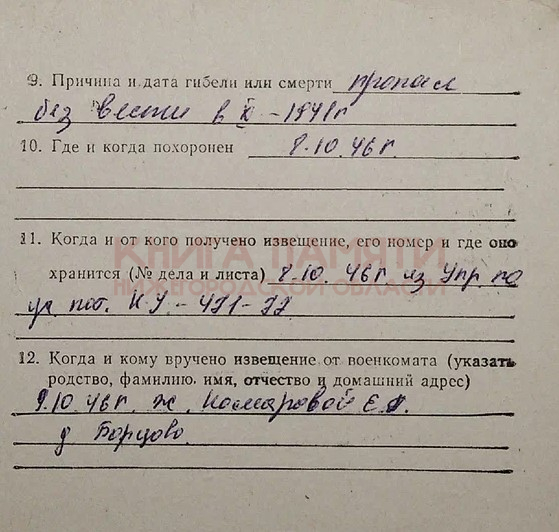 9. Причина и дата гибели или смерти пропал
без вести в X – 1941г
10. Где и когда похоронен 8.10.46г.
КНИГА ПАМЯТИ
НИЖЕГОРОДСКОЙ ОБЛАСТИ
11. Когда и от кого получено извещение, его номер и где оно
хранится (№ дела и листа) 8.10.46г из Упр по
уч пот.
12. Когда и кому вручено извещение от военкомата (указать
родство, фамилию, имя, отчество и домашний адрес)
9.10.46г. ж. Комаровой Е.
д Борцово